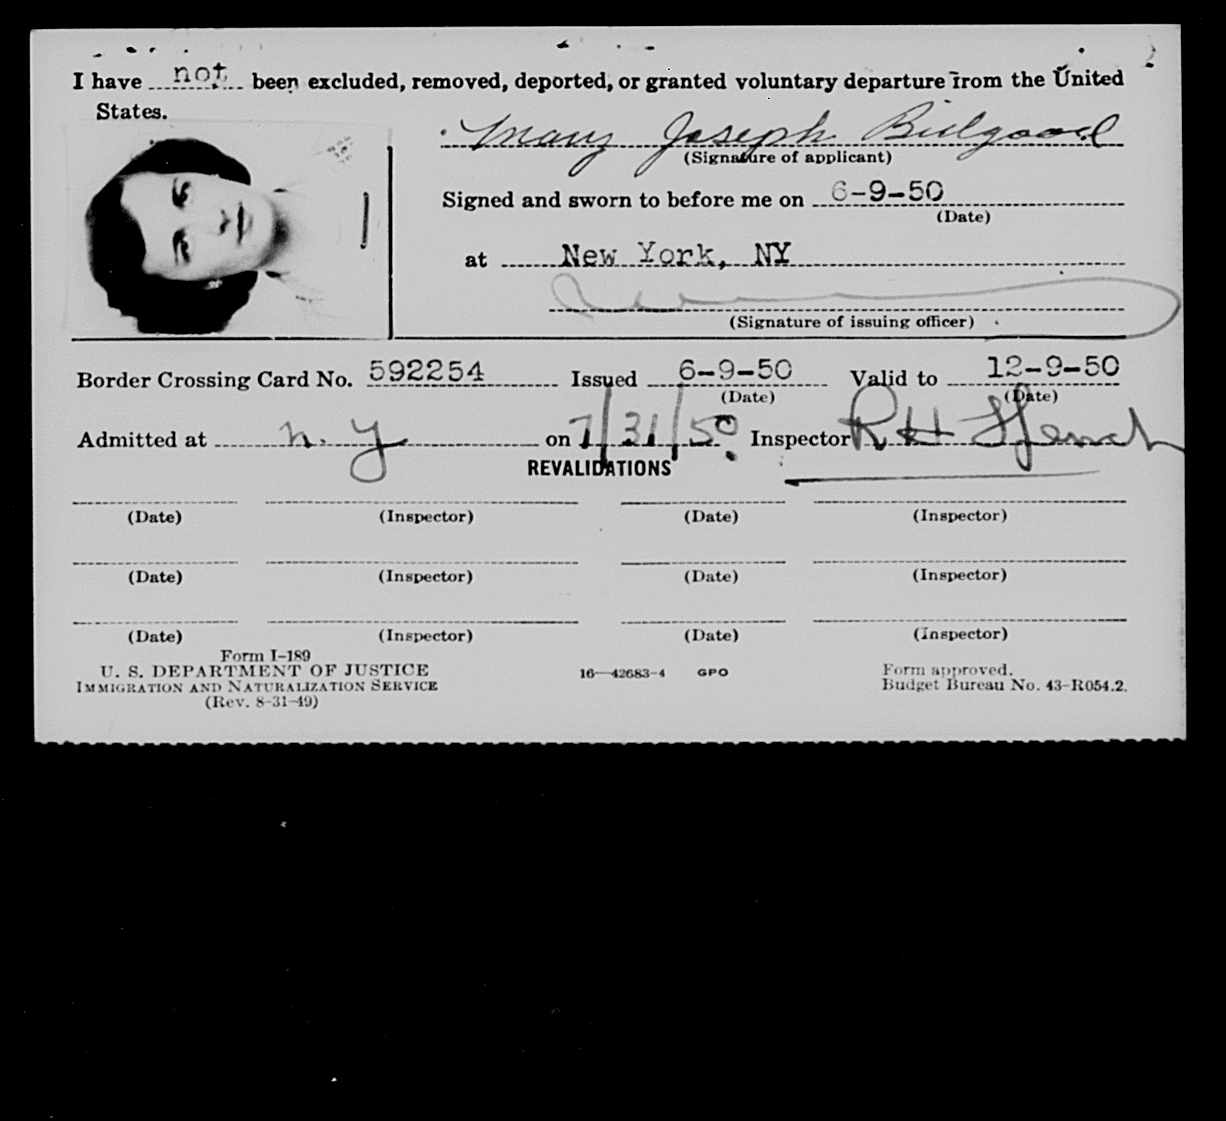 I have not been excluded, removed, deported, or granted voluntary departure from the United
States.
Mary Joseph Bidgood
(Signature of applicant)
Signed and sworn to before me on 6-9-50
(Date)
at New York, NY
(Signature of issuing officer)
Border Crossing Card No. 592254 Issued 6-9-50 Valid to 12-9-50
(Date) (Date)
Admitted at N.Y on 7/31/50 Inspector R H
REVALIDATIONS
(Date) (Inspector) (Date) (Inspector)
(Date) (Inspector) (Date) (Inspector)
(Date) (Inspector) (Date) (Inspector)
Form I-189
U. S. DEPARTMENT OF JUSTICE 16—42683-4 GPO Form approved.
IMMIGRATION AND NATURALIZATION SERVICE Budget Bureau No. 43-R054.2.
(Rev. 8-31-49)